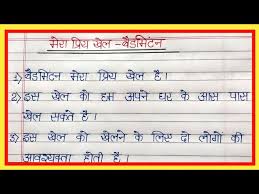 मेरा प्रिय खेल - बैडमिंटन
1) बैडमिंटन मेरा प्रिय खेल है।
2) इस खेल को हम अपने घर के आस पास
खेल सकते है।
3) इस खेल को खेलने के लिए दो लोगों की
आवश्यकता होती है।